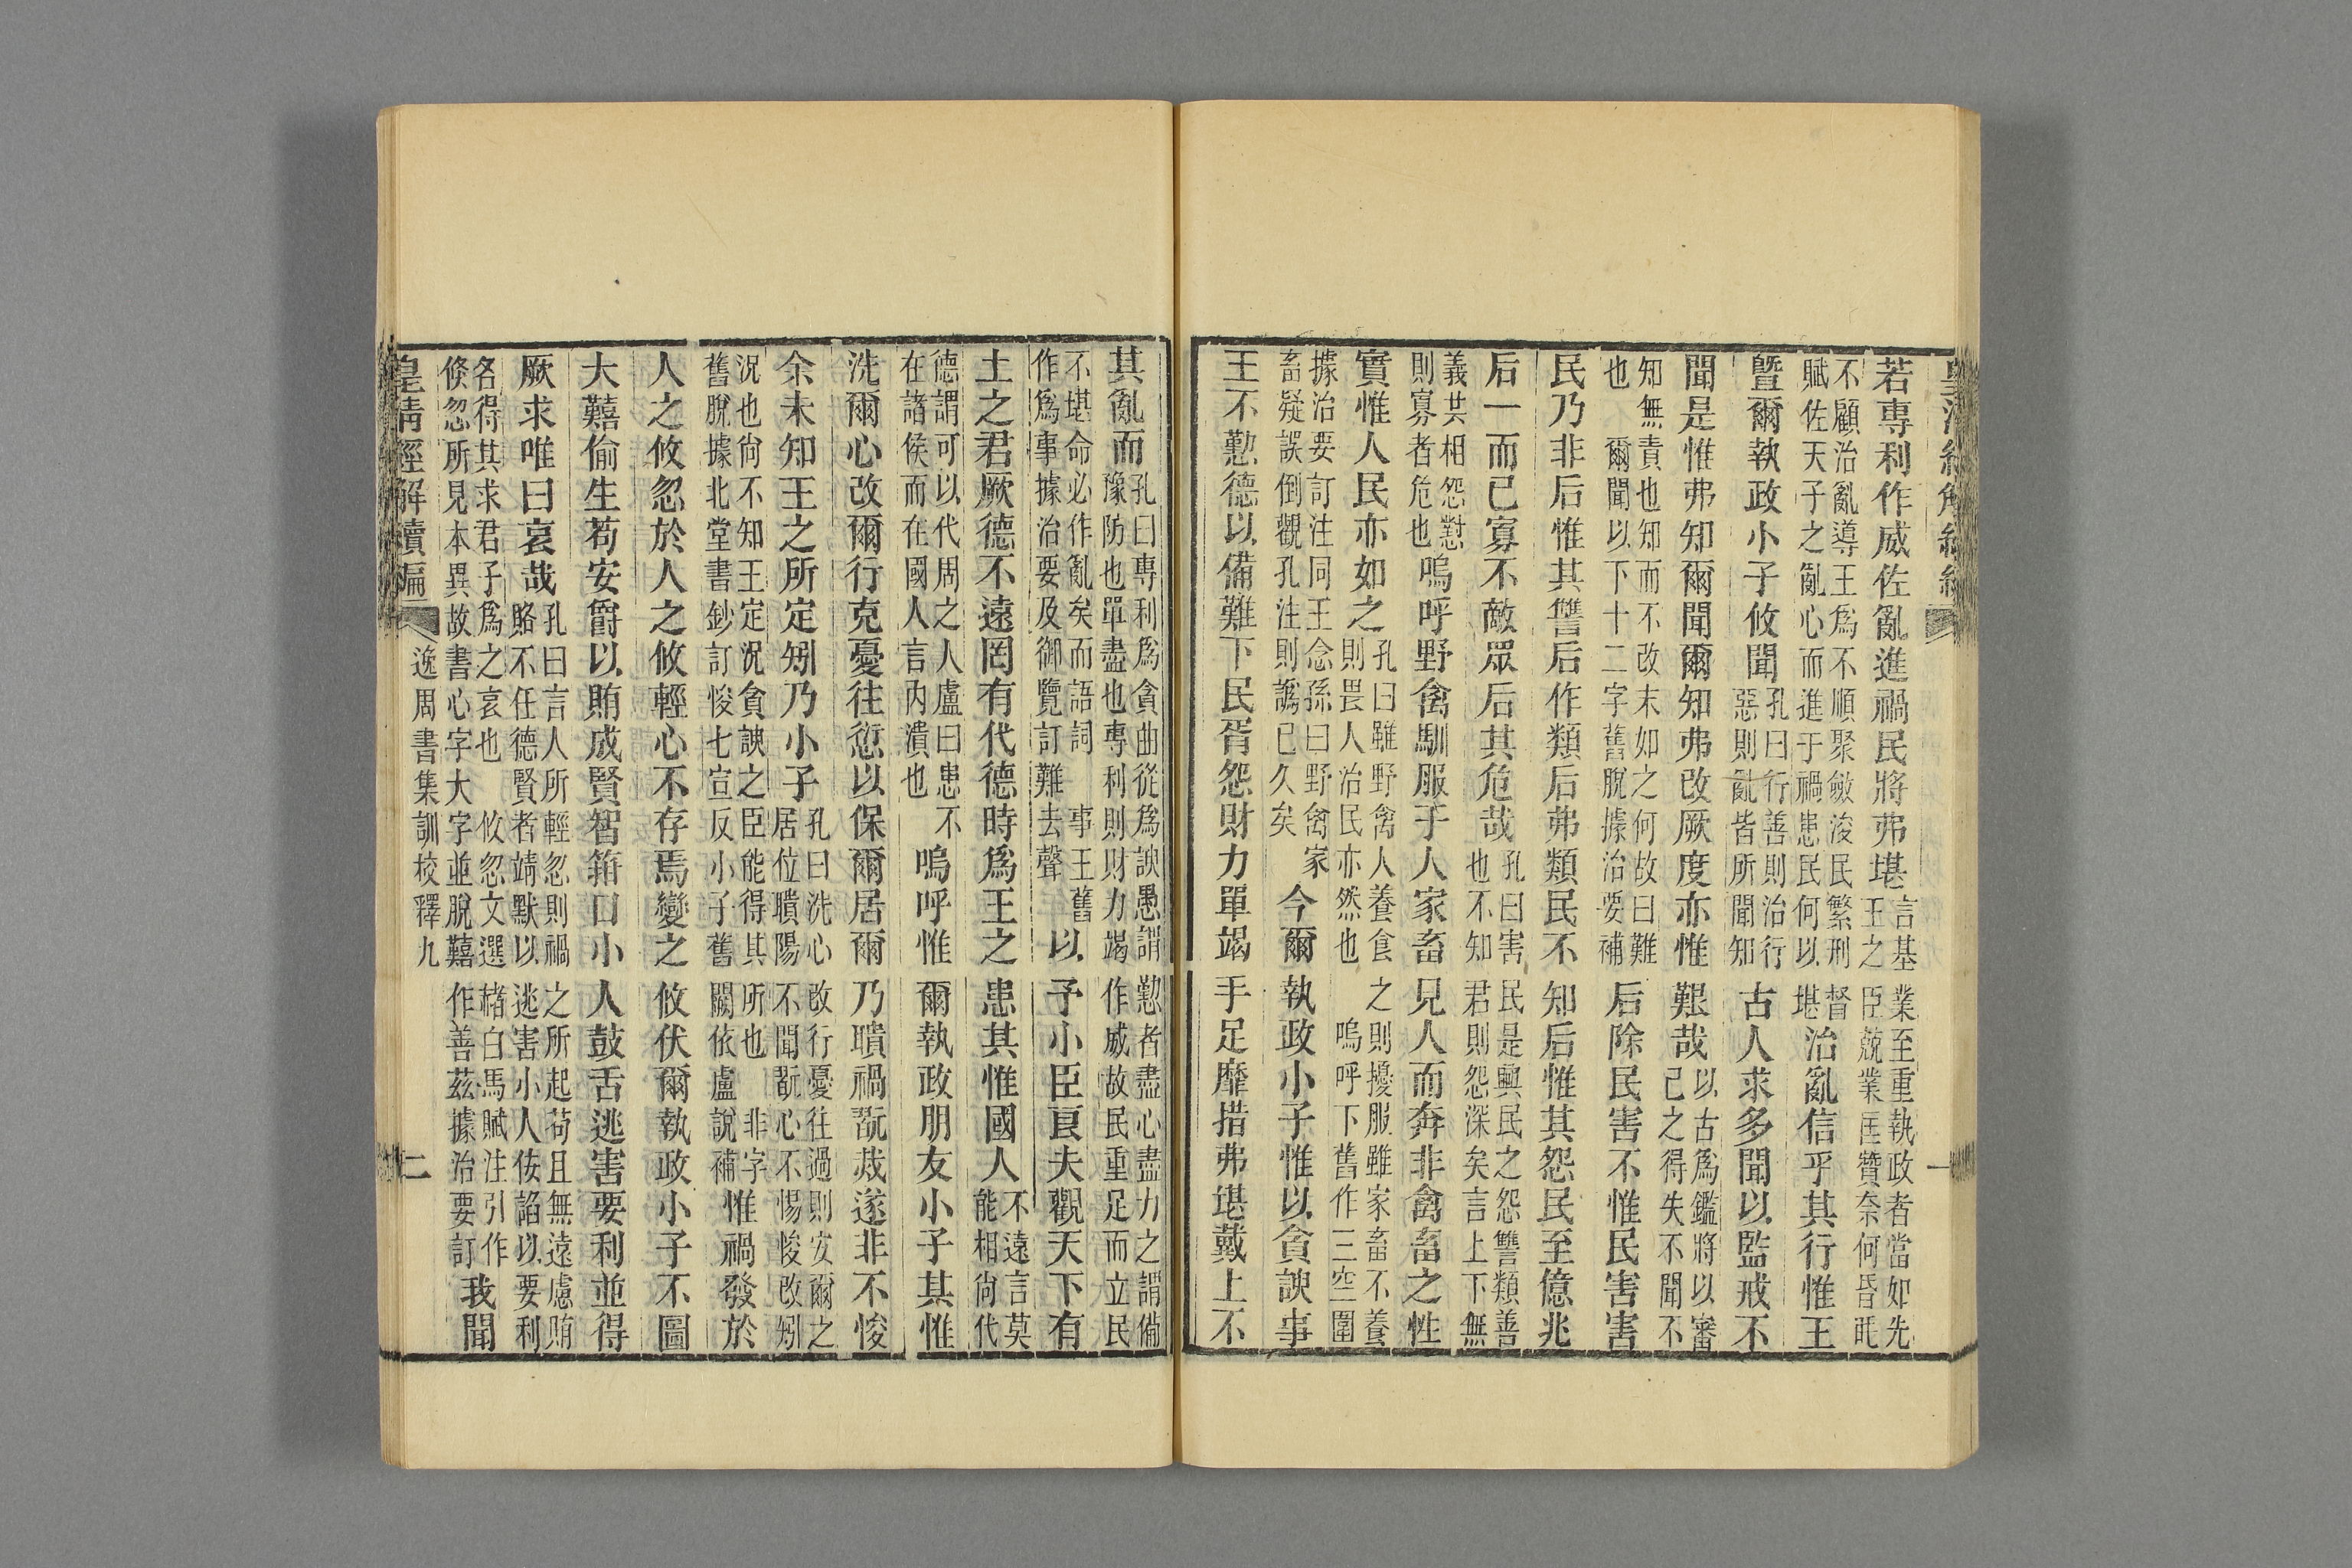 若專利作威佐亂進禍民將弗堪言基業至重執政者當如先王之臣兢業匡贊奈何昏
不顧治亂導王爲不順聚斂浚民繁刑督賦佐天子之亂心而進于禍患民何以堪治亂信乎其行惟王
曁爾執政小子攸聞孔曰行善則治行惡則亂皆所聞知古人求多聞以監戒不
聞是惟弗知爾聞爾知弗改厥度亦惟艱哉以古爲鑑將以審己之得失不聞不
知無責也知而不改末如之何故曰難也　爾聞以下十二字舊脫據治要補后除民害不惟民害害
民乃非后惟其讐后作類后弗類民不知后惟其怨民至億兆
后一而已寡不敵眾后其危哉孔曰害民是與民之怨讐類善也不知君則怨深矣言上下無
義共相怨懟則寡者危也嗚呼野禽馴服于人家畜見人而奔非禽畜之性
實惟人民亦如之孔曰雖野禽人養食之則擾服雖家畜不養則畏人治民亦然也　嗚呼下舊作三空圍
據治要訂注同王念孫曰野禽家畜疑誤倒觀孔注則譌已久矣今爾執政小子惟以貪諛事
王不懃德以備難下民胥怨財力單竭手足靡措弗堪戴上不
其亂而孔曰專利爲貪曲從爲諛愚謂懃者盡心盡力之謂備豫防也單盡也專利則財力竭作威故民重足而立民
不堪命必作亂矣而語詞　事王舊作爲事據治要及御覽訂難去聲以予小臣良夫觀天下有
土之君厥德不遠罔有代德時爲王之患其惟國人不遠言莫能相尙代
德謂可以代周之人盧曰患不在諸侯而在國人言內潰也嗚呼惟爾執政朋友小子其惟
洗爾心改爾行克憂往愆以保爾居爾乃聵禍翫烖遂非不悛
余未知王之所定矧乃小子孔曰洗心改行憂往過則安爾之居位聵陽不聞翫心不惕悛改矧
況也尙不知王定況貪諛之臣能得其所也　非字舊脫據北堂書鈔訂悛七宣反小子舊闕依盧說補惟禍發於
人之攸忽於人之攸輕心不存焉變之攸伏爾執政小子不圖
大囏偷生苟安爵以賄成賢智箝口小人鼓舌逃害要利並得
厥求唯曰哀哉孔曰言人所輕忽則禍之所起苟且無遠慮賄賂不任德賢者靖默以逃害小人佞諂以要利
各得其求君子爲之哀也　攸忽文選赭白馬賦注引作倏忽所見本異故書心字大字並脫囏作善茲據治要訂我聞
皇清經解續編　逸周書集訓校釋九　二